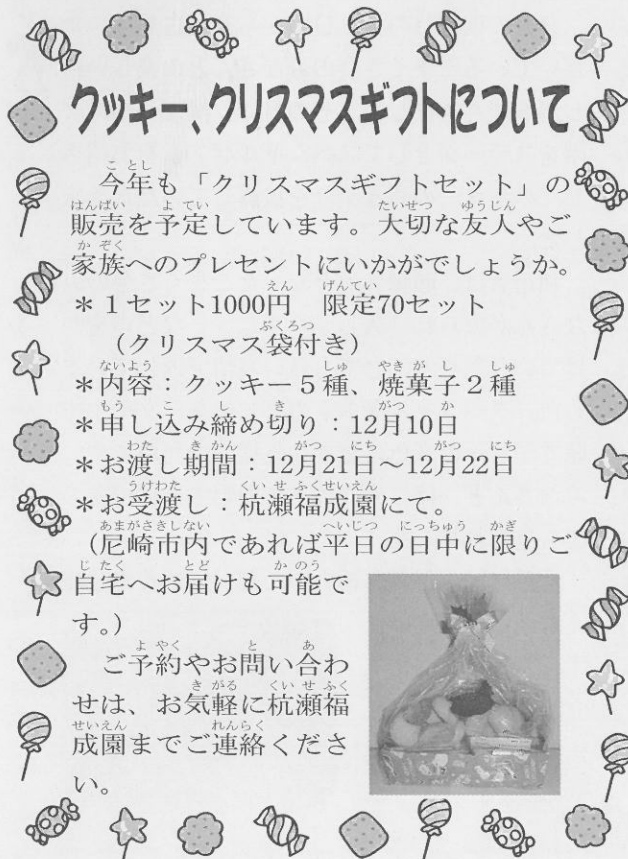 クッキー、クリスマスギフトについて
今年も「クリスマスギフトセット」の
販売を予定しています。大切な友人やご
家族へのプレゼントにいかがでしょうか。
＊１セット1000円　限定70セット
（クリスマス袋付き）
＊内容：クッキー５種、焼菓子２種
＊申し込み締め切り：12月10日
＊お渡し期間：12月21日～12月22日
＊お受渡し：杭瀬福成園にて。
（尼崎市内であれば平日の日中に限りご
自宅へお届けも可能で
す。）
ご予約やお問い合わ
せは、お気軽に杭瀬福
成園までご連絡くださ
い。